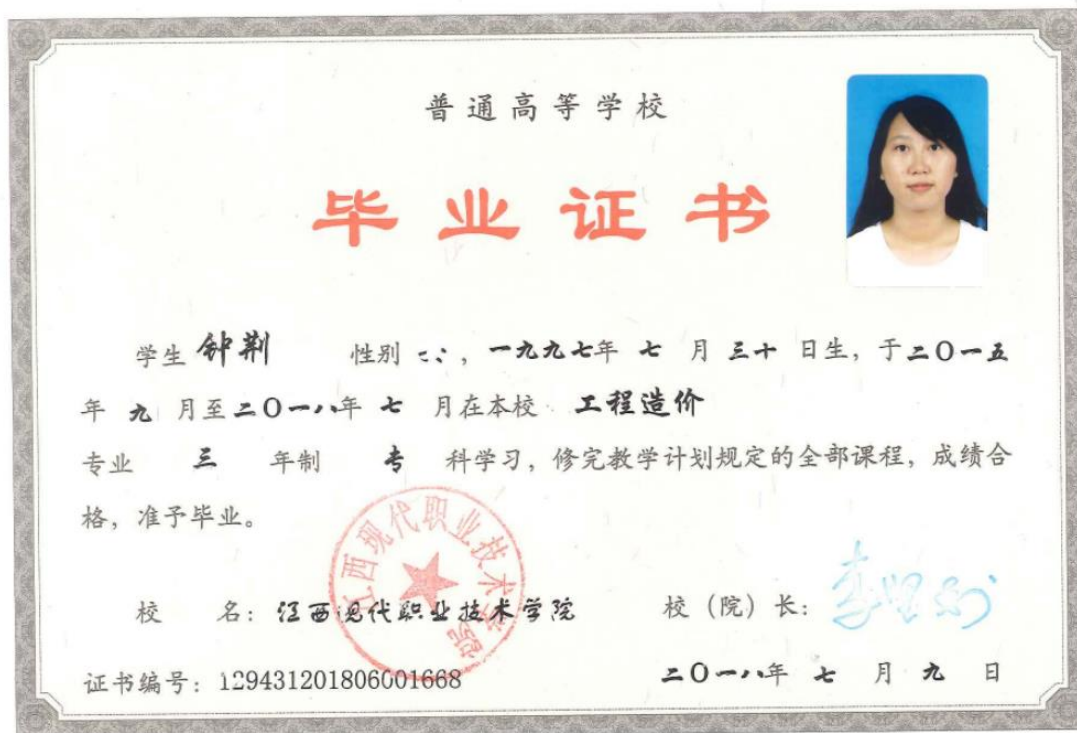 普通高等学校
毕业证书
学生 钟荆 性别 , 一九九七年 七 月 三十 日生, 于二〇一五
年 九 月至二〇一八年 七 月在本校 工程造价
专业 三 年制 专 科学习, 修完教学计划规定的全部课程, 成绩合
格, 准予毕业。
江西现代职业技术学院
校 名: 江西现代职业技术学院 校(院)长:
证书编号: 129431201806001668 二〇一八年 七 月 九 日